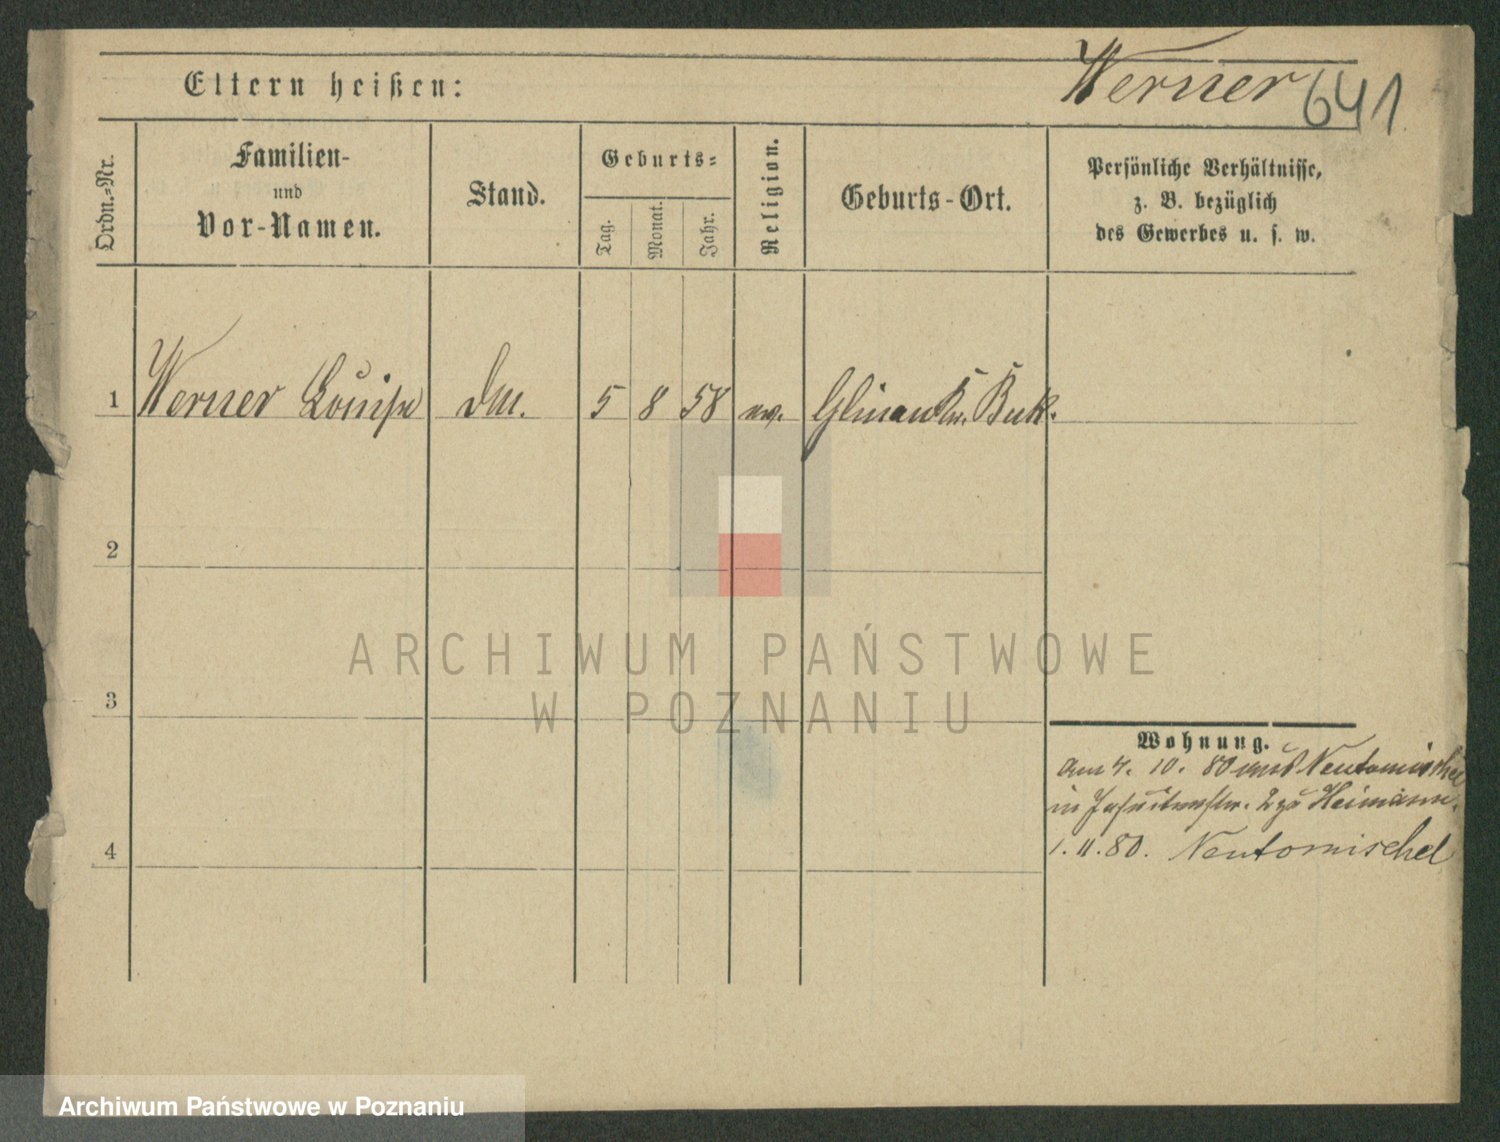 Werner 641
Eltern heißen:
Ordn.-Nr.
Familien-
und
Vor-Namen.
Stand.
Geburts-
Tag.
Monat.
Jahr.
Religion.
Geburts-Ort.
Persönliche Verhältnisse,
z. B. bezüglich
des Gewerbes u. s. w.
1 Werner Louise 5 8 58 ev. Glinau Kr. Buk.
2
3
4
Wohnung.
am 7. 10. 80 aus Neutomischel
in Jesuitenstr. 2 zu Heimann.
1. 11. 80. Neutomischel
ARCHIWUM PAŃSTWOWE
W POZNANIU
Archiwum Państwowe w Poznaniu